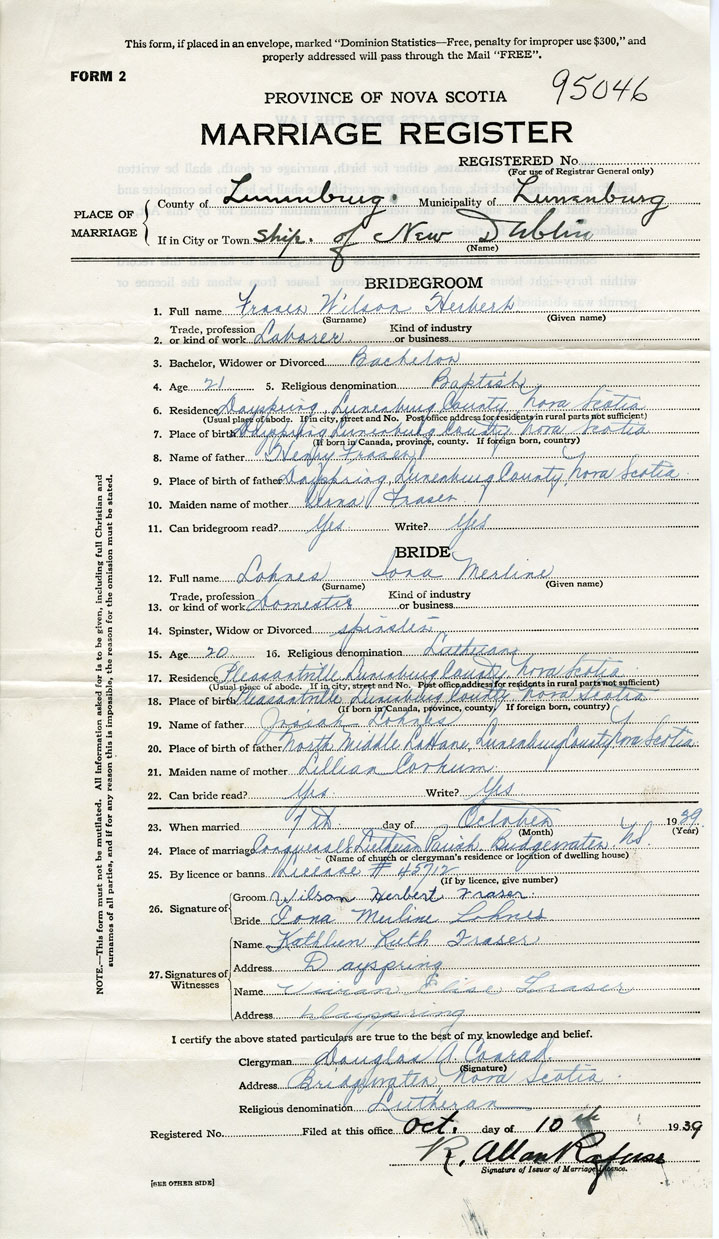 This form, if placed in an envelope, marked “Dominion Statistics—Free, penalty for improper use $300,” and
properly addressed will pass through the Mail “FREE”.
FORM 2
95046
PROVINCE OF NOVA SCOTIA
MARRIAGE REGISTER
REGISTERED No.
(For use of Registrar General only)
PLACE OF MARRIAGE
County of Lunenburg. Municipality of Lunenburg
If in City or Town ship. of New Dublin
(Name)
BRIDEGROOM
1. Full name Fraser Wilson Herbert
(Surname) (Given name)
2. Trade, profession or kind of work Laborer Kind of industry or business
3. Bachelor, Widower or Divorced Bachelor
4. Age 21 5. Religious denomination Baptist
6. Residence Dayspring, Lunenburg County, Nova Scotia
(Usual place of abode. If in city, street and No. Post office address for residents in rural parts not sufficient)
7. Place of birth Dayspring Lunenburg County Nova Scotia
(If born in Canada, province, county. If foreign born, country)
8. Name of father Henry Fraser
9. Place of birth of father Dayspring, Lunenburg County, Nova Scotia
10. Maiden name of mother Fraser
11. Can bridegroom read? Yes Write? Yes
BRIDE
12. Full name Lohnes Iona Merline
(Surname) (Given name)
13. Trade, profession or kind of work Domestic Kind of industry or business
14. Spinster, Widow or Divorced spinster
15. Age 20 16. Religious denomination Lutheran
17. Residence Pleasantville Lunenburg County, Nova Scotia
(Usual place of abode. If in city, street and No. Post office address for residents in rural parts not sufficient)
18. Place of birth Pleasantville Lunenburg County Nova Scotia
(If born in Canada, province, county. If foreign born, country)
19. Name of father Josiah Lohnes
20. Place of birth of father North Middle LaHave, Lunenburg County Nova Scotia
21. Maiden name of mother Lillian Corkum
22. Can bride read? Yes Write? Yes
23. When married 7th day of October 1939
(Month) (Year)
24. Place of marriage Lutheran Parish, Bridgewater, N.S.
(Name of church or clergyman's residence or location of dwelling house)
25. By licence or banns licence # 45712
(If by licence, give number)
26. Signature of Groom Wilson Herbert Fraser
Bride Iona Merline Lohnes
27. Signatures of Witnesses
Name Kathleen Ruth Fraser
Address Dayspring
Name Vivian Elise Fraser
Address Dayspring
I certify the above stated particulars are true to the best of my knowledge and belief.
Clergyman Douglas A Conrad
(Signature)
Address Bridgewater, Nova Scotia
Religious denomination Lutheran
Registered No. Filed at this office oct. day of 10th 1939
R. Allan Rafuse
Signature of Issuer of Marriage Licence.
[SEE OTHER SIDE]
NOTE.—This form must not be mutilated. All information asked for is to be given, including full Christian and
surnames of all parties, and if for any reason this is impossible, the reason for the omission must be stated.